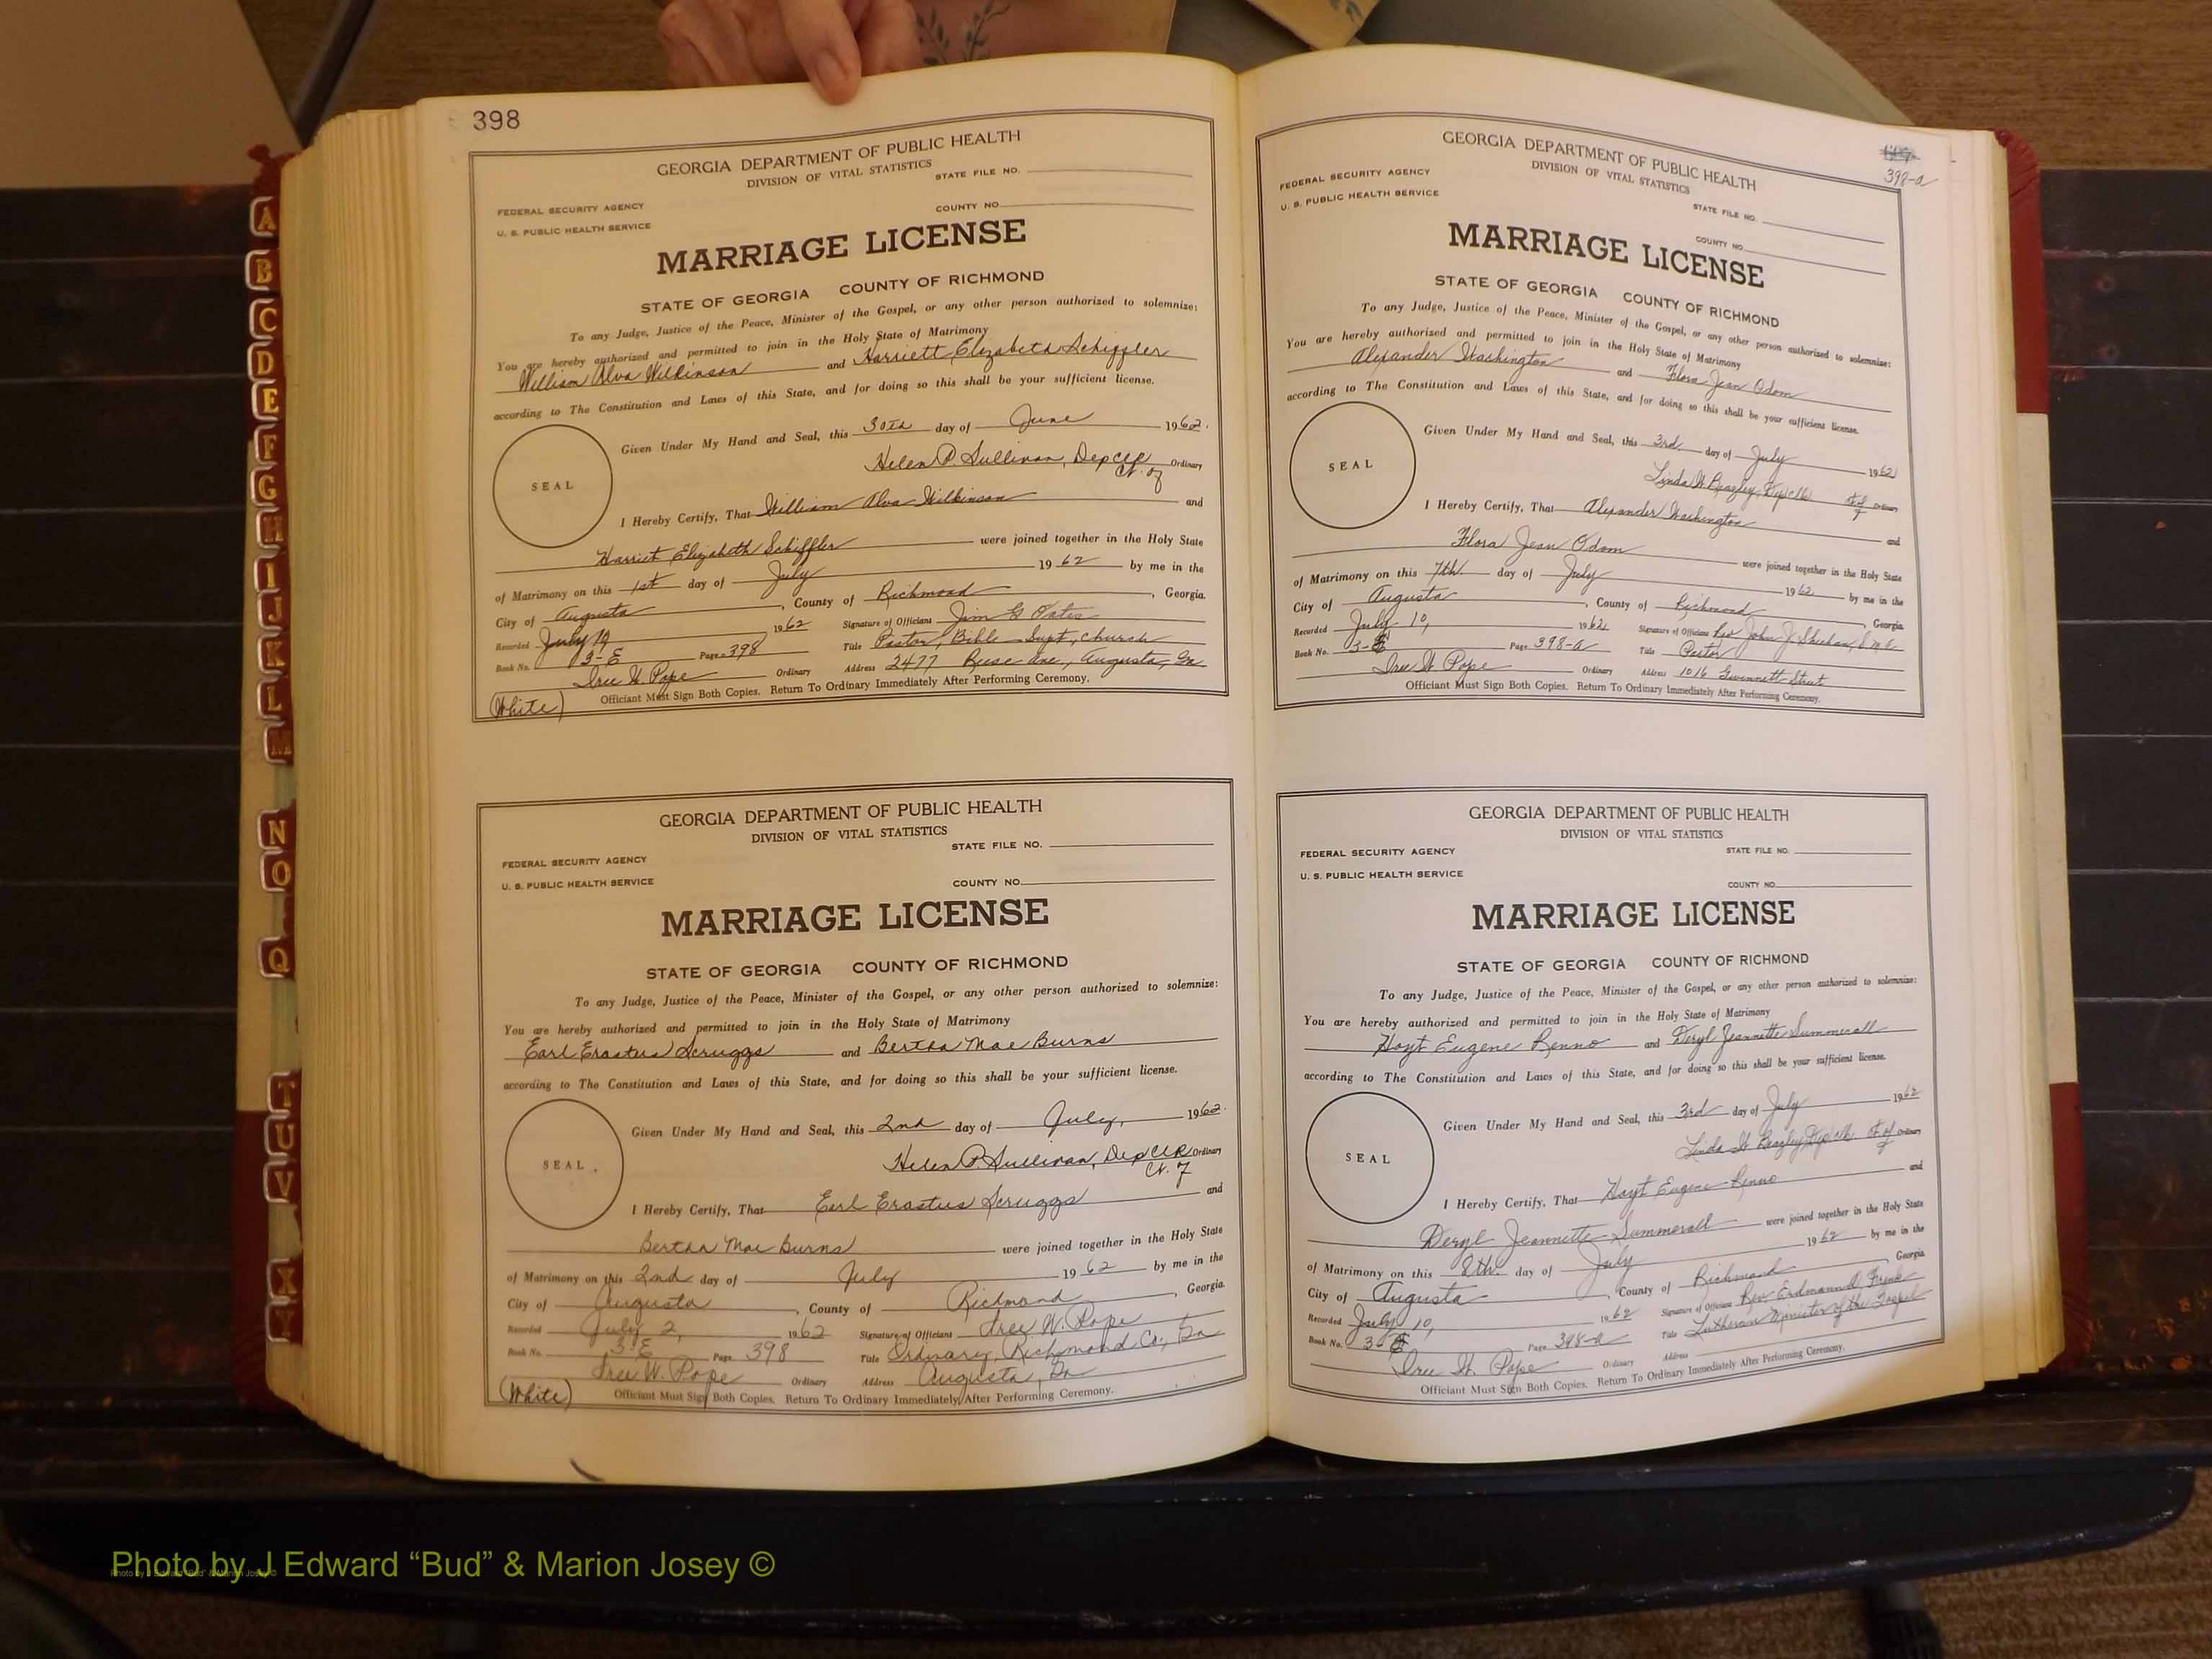 398
GEORGIA DEPARTMENT OF PUBLIC HEALTH
DIVISION OF VITAL STATISTICS
STATE FILE NO.
FEDERAL SECURITY AGENCY
COUNTY NO.
U. S. PUBLIC HEALTH SERVICE
MARRIAGE LICENSE
STATE OF GEORGIA COUNTY OF RICHMOND
To any Judge, Justice of the Peace, Minister of the Gospel, or any other person authorized to solemnize:
You are hereby authorized and permitted to join in the Holy State of Matrimony
William Alva Wilkinson and Harriett Elizabeth Schiffler
according to The Constitution and Laws of this State, and for doing so this shall be your sufficient license.
Given Under My Hand and Seal, this 30th day of June 1962.
Helen P. Sullivan, Dep Clk Ordinary
Ct. of
SEAL
I Hereby Certify, That William Alva Wilkinson and
Harriet Elizabeth Schiffler were joined together in the Holy State
of Matrimony on this 1st day of July 1962 by me in the
City of Augusta, County of Richmond, Georgia.
Recorded July 1962 Signature of Officiant Jim G Oates
Book No. 3-E Page 398 Title Pastor, Bible Bapt, Church
Ordinary Address 2477 Ave, Augusta, Ga
(White) Officiant Must Sign Both Copies. Return To Ordinary Immediately After Performing Ceremony.
GEORGIA DEPARTMENT OF PUBLIC HEALTH
DIVISION OF VITAL STATISTICS
STATE FILE NO.
FEDERAL SECURITY AGENCY
U. S. PUBLIC HEALTH SERVICE
COUNTY NO.
MARRIAGE LICENSE
STATE OF GEORGIA COUNTY OF RICHMOND
To any Judge, Justice of the Peace, Minister of the Gospel, or any other person authorized to solemnize:
You are hereby authorized and permitted to join in the Holy State of Matrimony
Earl Erastus Scruggs and Bertha Mae Burns
according to The Constitution and Laws of this State, and for doing so this shall be your sufficient license.
Given Under My Hand and Seal, this 2nd day of July, 1962.
Helen P Sullivan, Dep Clk Ordinary
Ct. of
SEAL
I Hereby Certify, That Earl Erastus Scruggs and
Bertha Mae Burns were joined together in the Holy State
of Matrimony on this 2nd day of July 1962 by me in the
City of Augusta, County of Richmond, Georgia.
Recorded July 2, 1962 Signature of Officiant W. Pope
Book No. 3-E Page 398 Title Ordinary, Richmond Co, Ga
W. Pope Ordinary Address Augusta, Ga
(White) Officiant Must Sign Both Copies. Return To Ordinary Immediately After Performing Ceremony.
398-a
GEORGIA DEPARTMENT OF PUBLIC HEALTH
DIVISION OF VITAL STATISTICS
FEDERAL SECURITY AGENCY
U. S. PUBLIC HEALTH SERVICE
STATE FILE NO.
COUNTY NO.
MARRIAGE LICENSE
STATE OF GEORGIA COUNTY OF RICHMOND
To any Judge, Justice of the Peace, Minister of the Gospel, or any other person authorized to solemnize:
You are hereby authorized and permitted to join in the Holy State of Matrimony
Alexander Washington and Flora Jean Odom
according to The Constitution and Laws of this State, and for doing so this shall be your sufficient license.
Given Under My Hand and Seal, this 3rd day of July 1962
Linda W. Beazley, Dep Clk Ct of Ordinary
SEAL
I Hereby Certify, That Alexander Washington and
Flora Jean Odom were joined together in the Holy State
of Matrimony on this 7th. day of July 1962 by me in the
City of Augusta, County of Richmond Georgia.
Recorded July 10, 1962 Signature of Officiant Rev John J. Sheehan, S.M.A.
Book No. 3-E Page 398-a Title Pastor
Pope Ordinary Address 1016 Gwinnett Street
Officiant Must Sign Both Copies. Return To Ordinary Immediately After Performing Ceremony.
GEORGIA DEPARTMENT OF PUBLIC HEALTH
DIVISION OF VITAL STATISTICS
FEDERAL SECURITY AGENCY
STATE FILE NO.
U. S. PUBLIC HEALTH SERVICE
COUNTY NO.
MARRIAGE LICENSE
STATE OF GEORGIA COUNTY OF RICHMOND
To any Judge, Justice of the Peace, Minister of the Gospel, or any other person authorized to solemnize:
You are hereby authorized and permitted to join in the Holy State of Matrimony
Hoyt Eugene Renno and Deryl Jeannette Summerall
according to The Constitution and Laws of this State, and for doing so this shall be your sufficient license.
Given Under My Hand and Seal, this 3rd day of July 1962
Linda W. Beazley, Dep Clk Ct of Ordinary
SEAL
I Hereby Certify, That Hoyt Eugene Renno and
Deryl Jeannette Summerall were joined together in the Holy State
of Matrimony on this 8th. day of July 1962 by me in the
City of Augusta, County of Richmond Georgia.
Recorded July 10, 1962 Signature of Officiant Rev. Erdmann W. Frenk
Book No. 3-E Page 398-a Title Lutheran Minister of the Gospel
Pope Ordinary Address
Officiant Must Sign Both Copies. Return To Ordinary Immediately After Performing Ceremony.
A
B
C
D
E
F
G
H
I
J
K
L
M
N
O
Q
T
U
V
X
Y
Photo by J Edward “Bud” & Marion Josey ©
Photo by J Edward “Bud” & Marion Josey ©